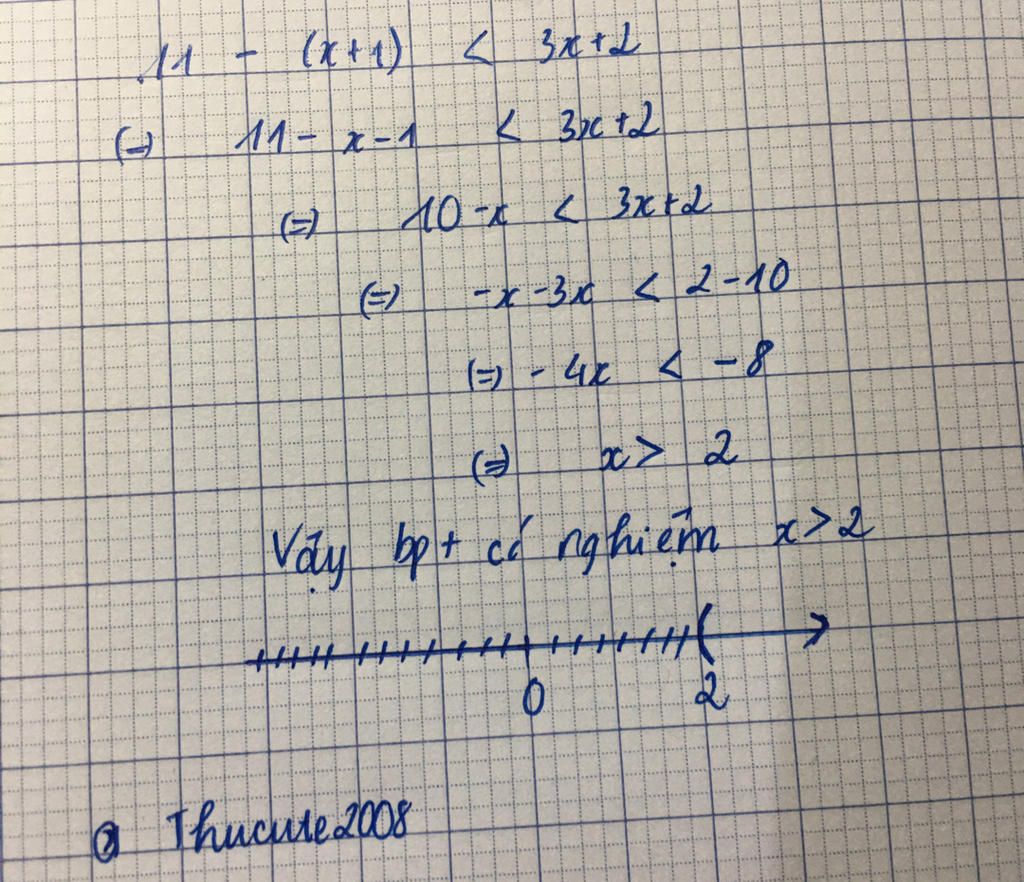 11 - (x+1) < 3x+2
(=) 11 - x - 1 < 3x+2
(=) 10 - x < 3x+2
(=) -x - 3x < 2 - 10
(=) - 4x < - 8
(=) x > 2
Vậy bpt có nghiệm x > 2
0 2
@ Thucute2008